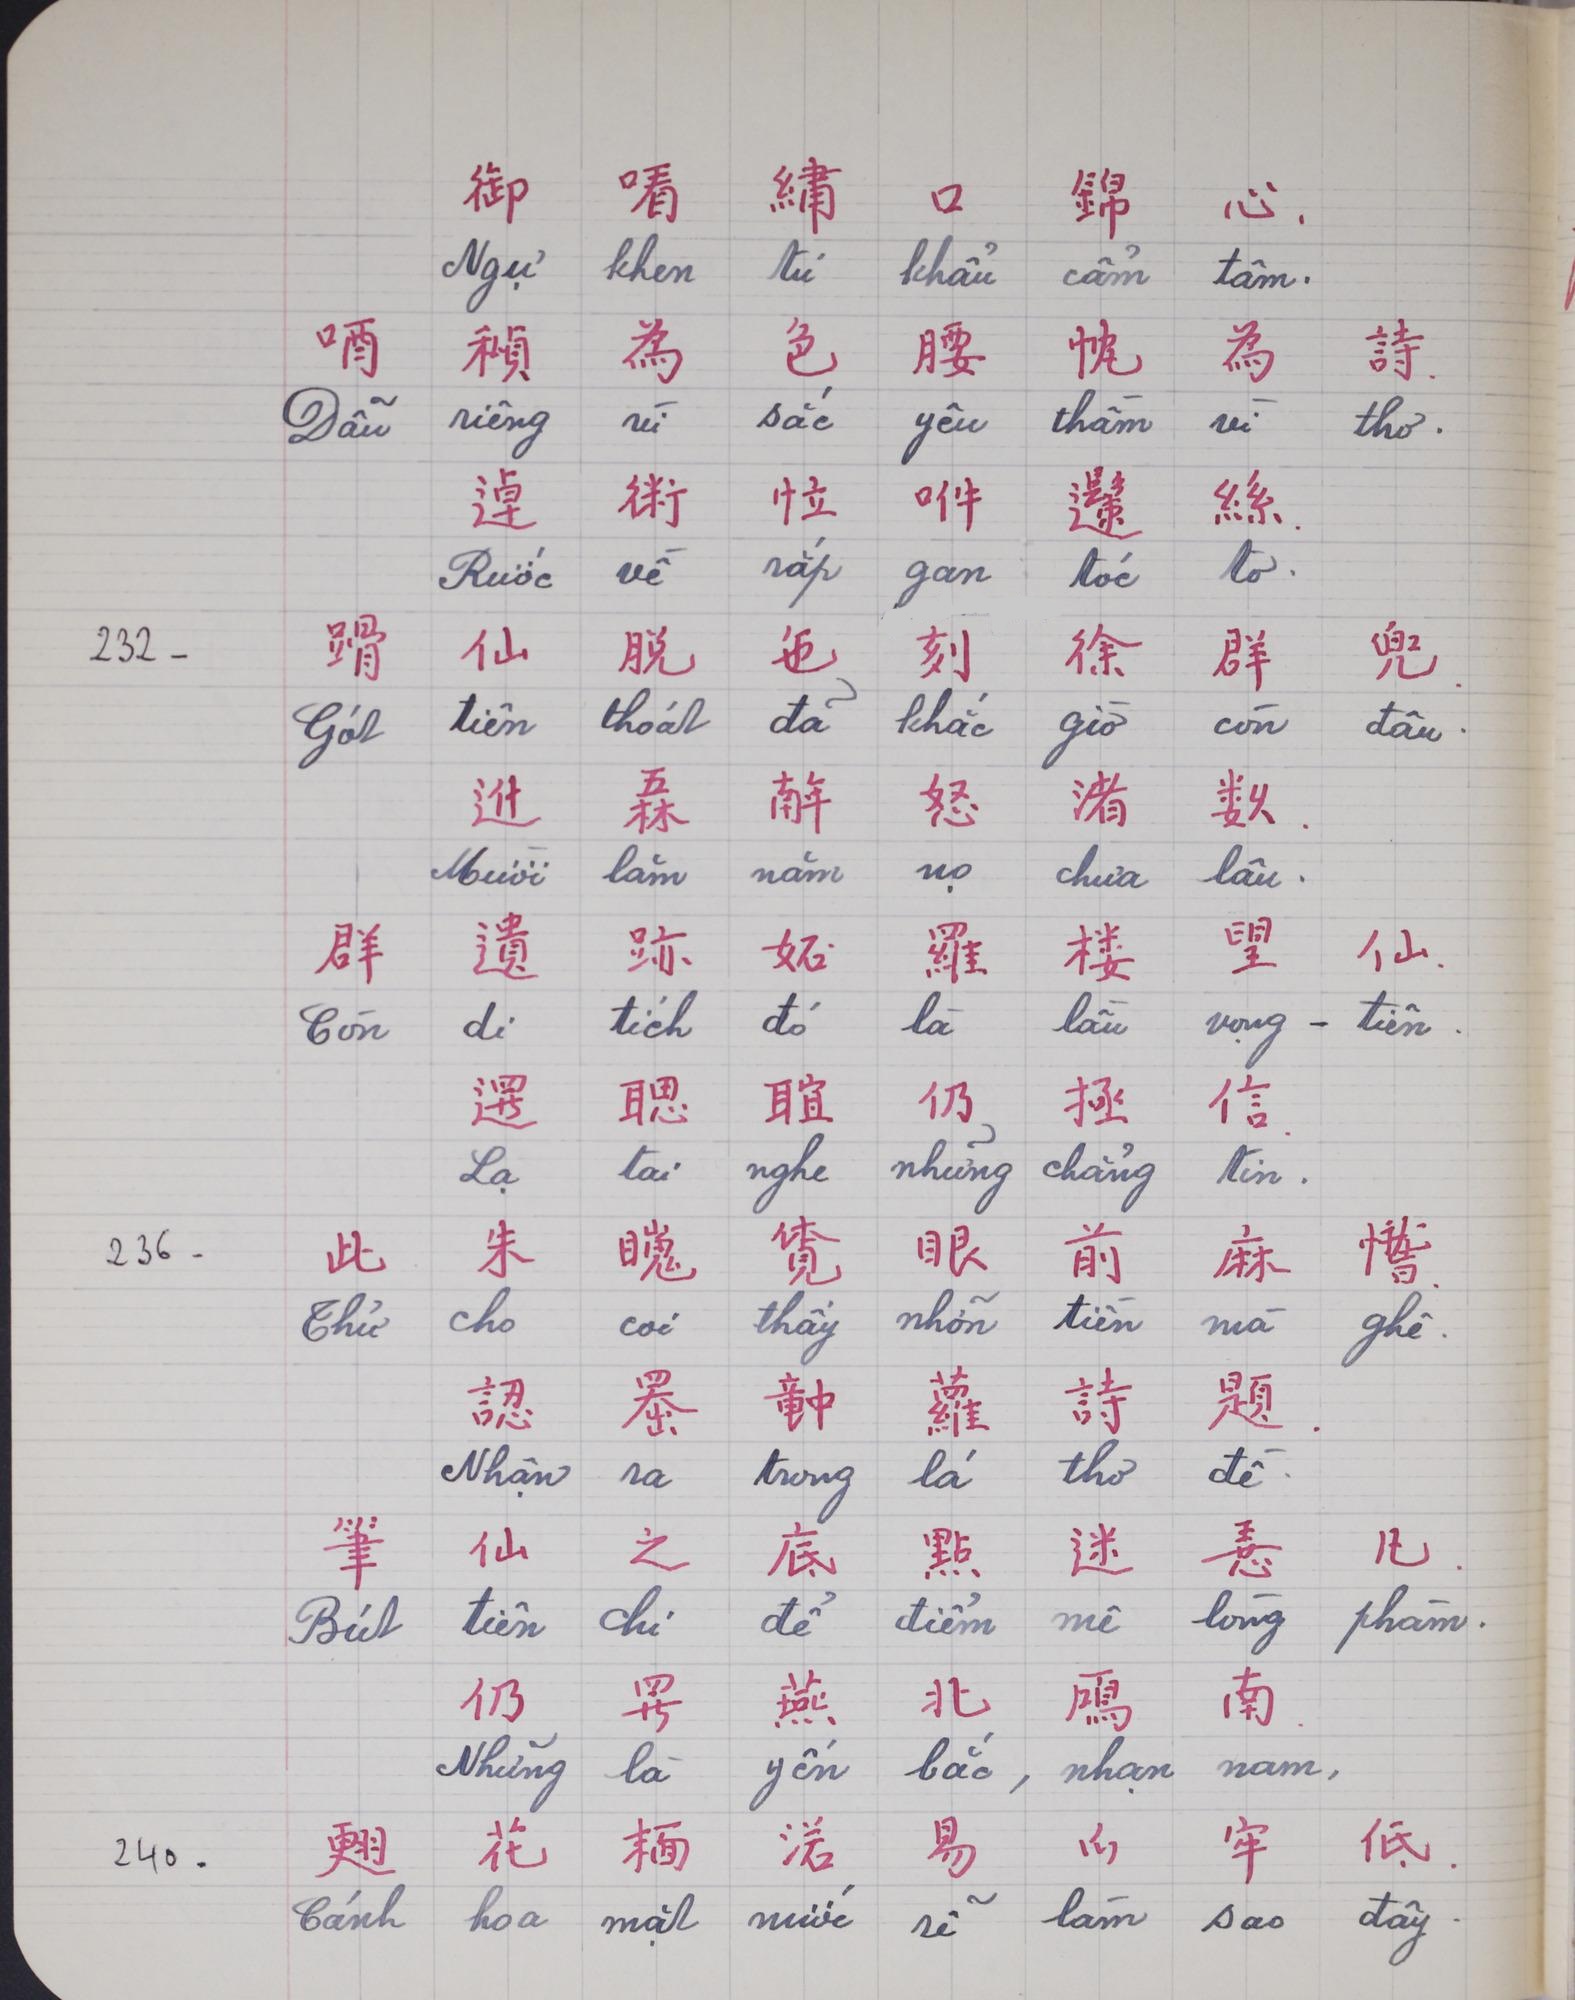 御 㗂 繡 口 錦 心.
Ngự khen tú khẩu cẩm tâm.
𠱋 𥢆 為 色 腰 忱 為 詩.
Dẫu riêng vì sắc yêu thầm vì thơ.
逴 術 𢗖 絲.
Rước về rắp gan tóc tơ.
232 - 仙 脱 㐌 刻 徐 群 兜.
Gót tiên thoát đả khắc giờ còn đâu.
𨑮 𠄻 𢆥 怒 渚 数.
Mười lăm năm nọ chưa lâu.
群 遺 跡 妬 羅 楼 望 仙.
Còn di tích đó là lầu vọng - tiên.
遻 聦 𦖑 仍 拯 信.
Lạ tai nghe những chẳng tin.
236 - 此 朱 䀡 覧 眼 前 麻.
Thử cho coi thấy nhỡn tiền mà ghê.
認 𠚢 𥪝 蘿 詩 題.
Nhận ra trong lá thơ đề.
筆 仙 之 底 點 迷 𢚸 凡.
Bút tiên chi để điểm mê lòng phàm.
仍 𱺵 燕 北 鴈 南.
Những là yến bắc, nhạn nam,
240. 𦑃 花 𩈘 渃 易 𫜵 牢 低.
Cánh hoa mặt nước rễ làm sao đây.